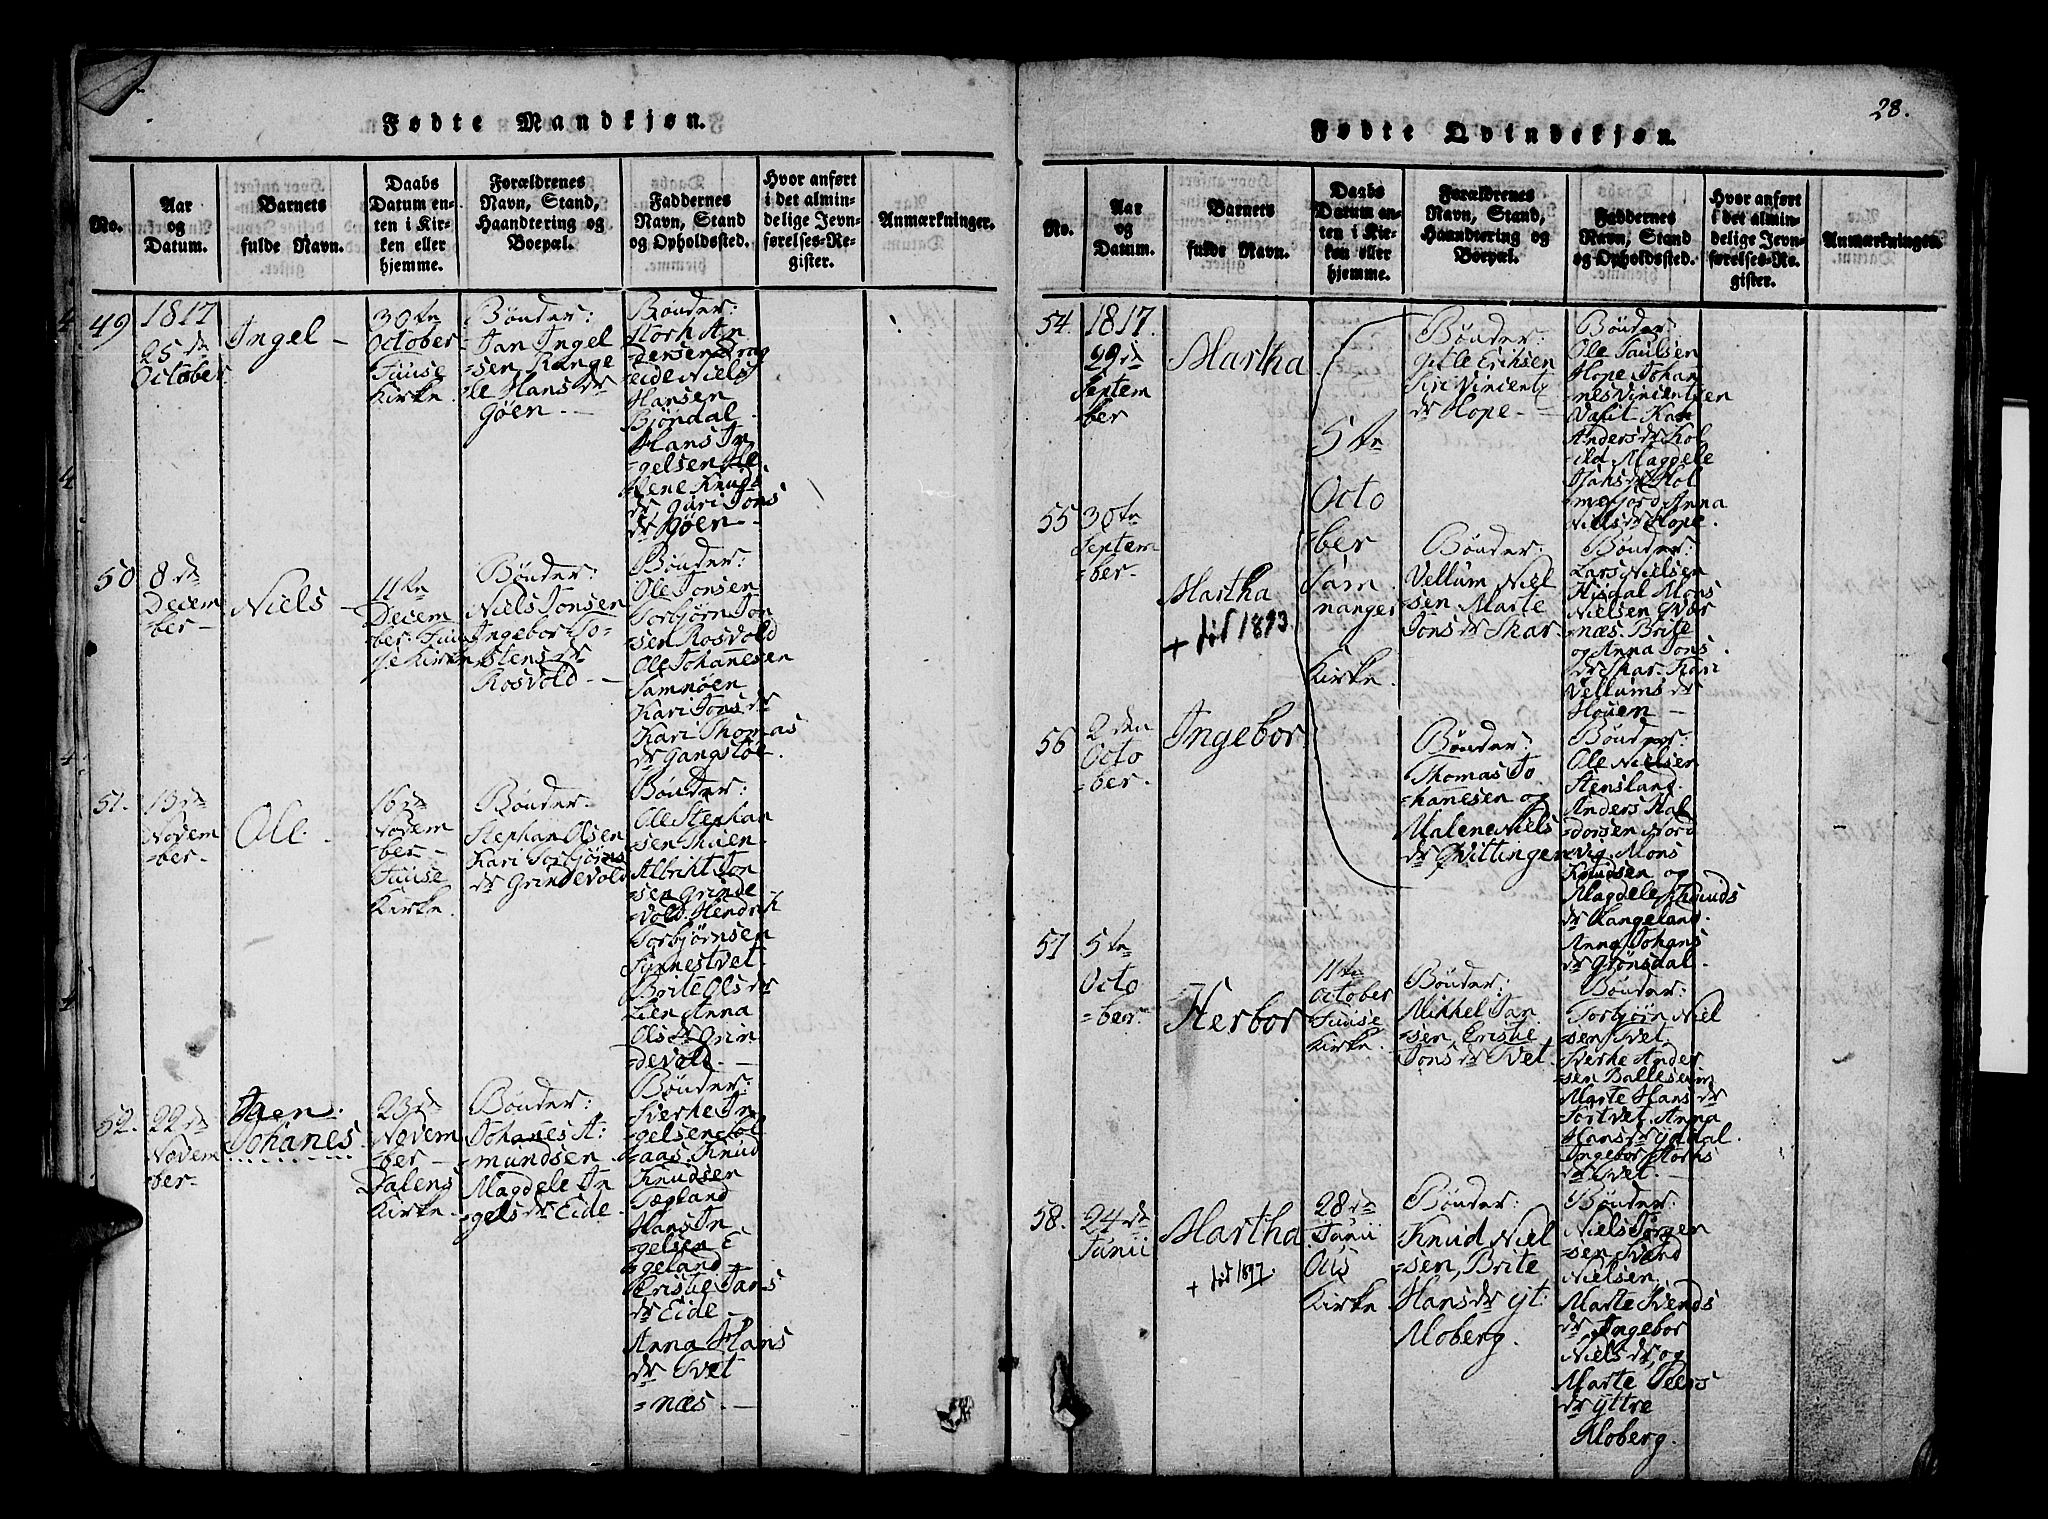 28.
Fødte Mandkjøn.
No.
Aar
og
Datum.
Barnets
fulde Navn.
Daabs
Datum en-
ten i Kir-
ken eller
hjemme.
Forældrenes
Navn, Stand,
Haandtering og
Boepæl.
Faddernes
Navn, Stand
og Opholdssted.
Hvor anført
i det almin-
delige Jevn-
førelses-Re-
gister.
Anmærkninger.
49
1817
25 de
October
Ingel
30 te
October
Fuuse
Kirke
Bønder:
Jan Ingel
=sen, Range
le Hans dr
Gøen.
Bønder:
Storh An
=dersen Drag
=eide Niels
Hansen
Bjøndal
Hans In
=gelsen
=lene Knuds
dr, Guri Jons
dr Gøen
50
8 de
Decem
=ber
Niels
11 te
Decem
=ber. Fuu
se Kirke
Bønder:
Niels Jonsen
Ingebor To=
=stens dr
Rosvold
Bønder:
Ole Jonsen
Torbjørn Jon
=sen Rosvold
Ole Johannesen
Samnøen
Kari Jons dr
Kari Thomas
dr Gangstøe.
51.
13 de
Novem
=ber
Ole.
16 de
Novem
=ber
Fuuse
Kirke.
Bønder:
Stephan Olsen
Kari Torbjørns
dr Grindevold
Bønder:
Ole Stephan
sen Thuen
Albricht Jon
=sen Grinde
=vold. Hendrik
Torbjørnsen
Synnestvet
Brite Ols dr
Lien Anna
Ols dr Grin
=devold.
52.
22 de
Novem
ber
Johanes
23 de
Novem
=ber
Dalens
Kirke.
Bønder:
Johanes A=
mundsen.
Magdele In
=gels dr Eide
Bønder:
Sverke In
=gelsen Føl
=aas. Knud
Knudsen
Tægland
Hans In
=gelsen E
=geland
Kristie Jans
dr Eide
Anna Hans
dr Tvet
=næs.
Fødte Qvindekjøn.
No.
Aar
og
Datum.
Barnets
fulde Navn.
Daabs
Datum en-
ten i Kir-
ken eller
hjemme.
Forældrenes
Navn, Stand,
Haandtering og
Boepæl.
Faddernes
Navn, Stand
og Opholdssted.
Hvor anført
i det almin-
delige Jevn-
førelses-Re-
gister.
Anmærkninger.
54.
1817.
29 de
Septem
=ber
Martha
5 te
Octo
ber
Sam
nanger
Kirke.
Bønder:
Gitle Erichsen
Siri Vincentz
dr Hope
Bønder:
Ole Paulsen
Hope Johan
=nes Vincentsen
Kari
Anders dr Kol
Magdele
Hans dr Hol
mefjord Anna
Niels dr Hope.
55
30 te
Septem
=ber
Martha
+ død 1893.
Bønder:
Vellum Niel
sen Marte
Jons dr Skar.
Bønder:
Lars Nielsen
Hisdal Mons
Nielsen Qvær
=næs. Brite
og Anna Jons
dr Skar. Kari
Vellums dr
Houen
56
2 den
Octo
=ber.
Ingebor
Bønder:
Thomas Jo
=hanesen og
Malene Niels
dr Qvittingen
Bønder:
Ole Nielsen
Stensland.
Anders Hal
dorsen Nord
=vig, Mons
Knudsen og
Magdele Knuds
dr Langeland.
Anna Johans
dr Grønsdal.
57
5 te
Octo
=ber.
Herbor
11 te
October
Fuuse
Kirke.
Bønder:
Mikkel Jan
=sen, Kristie
Jons dr Tvet.
Bønder:
Torbjørn Niel
sen Tvet,
Sverke Ander
sen Balleseim
Marte Hans dr
Sørtvet, Anna
Hans dr Yddal.
Ingebor Storhs
dr Tvet.
58.
24 de
Junii
Martha
+ død 1897.
28 de
Junii
Ous
Kirke.
Bønder:
Knud Niel
sen, Brite
Hans dr Yt:
Moberg.
Bønder:
Niels Jørgen
=sen Svend
Nielsen,
Marte Svends
dr, Ingebor
Niels dr, og
Marte Peers
dr Yttre
Moberg.